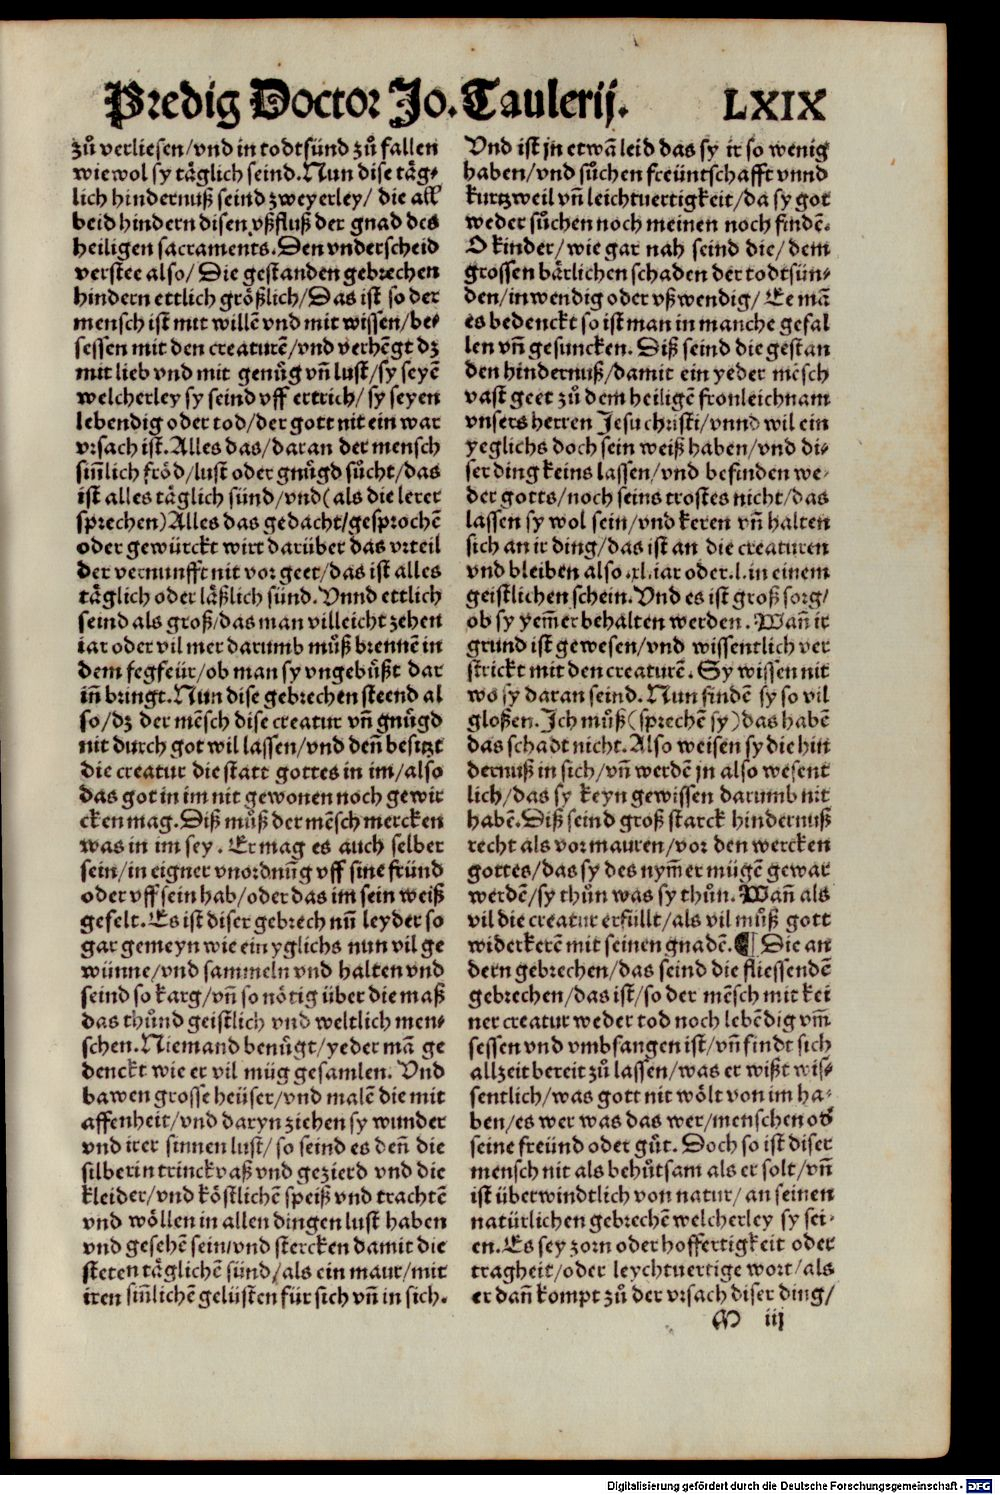 Predig Doctor Jo. Taulerij. LXIX
zů verliesen/vnd in todtsünd zů fallen
wiewol sy täglich seind. Nun dise täg⸗
lich hindernuß seind zweyerley/ die all
beid hindern disen vßfluß der gnad des
heiligen sacraments. Den vnderscheid
verstee also/ Die gestanden gebrechen
hindern ettlich größlich/Das ist so der
mensch ist mit willē vnd mit wissen/be⸗
sessen mit den creaturē/vnd verhēgt dz
mit lieb vnd mit genůg vñ lust/sy seyē
welcherley sy seind vff ertrich/ sy seyen
lebendig oder tod/der gott nit ein war
vrsach ist. Alles das/daran der mensch
siñlich fröd/lust oder gnůgd sůcht/das
ist alles täglich sünd/vnd(als die lerer
sprechen)Alles das gedacht/gesprochē
oder gewürckt wirt darüber das vrteil
der vernunfft nit vor geet/das ist alles
täglich oder läßlich sünd. Vnnd ettlich
seind als groß/das man villeicht zehen
iar oder vil mer darumb můß brennē in
dem fegfeür/ob man sy vngebůßt dar
iñ bringt. Nun dise gebrechen steend al
so/dz der mēsch dise creatur vñ gnůgd
nit durch got wil lassen/vnd deñ besitzt
die creatur die statt gottes in im/also
das got in im nit gewonen noch gewir
cken mag. Diß můß der mēsch mercken
was in im sey. Er mag es auch selber
sein/in eigner vnordnūg vff sine fründ
oder vff sein hab/oder das im sein weiß
gefelt. Es ist diser gebrech nūn leyder so
gar gemeyn wie ein yglichs nun vil ge
wünne/vnd sammeln vnd halten vnd
seind so karg/vñ so nötig über die maß
das thůnd geistlich vnd weltlich men⸗
schen. Niemand benůgt/yeder mā ge
denckt wie er vil müg gesamlen. Vnd
bawen grosse heüser/vnd malē die mit
affenheit/vnd daryn ziehen sy wunder
vnd irer sinnen lust/ so seind es deñ die
silberin trinckvaß vnd gezierd vnd die
kleider/vnd köstlichē speiß vnd trachtē
vnd wöllen in allen dingen lust haben
vnd gesehē sein/vnd stercken damit die
steten täglichē sünd/als ein maur/mit
iren siñlichē gelüsten für sich vñ in sich.
Vnd ist jn etwā leid das sy ir so wenig
haben/vnd sůchen freüntschafft vnnd
kurtzweil vñ leichtuertigkeit/da sy got
weder sůchen noch meinen noch findē.
O kinder/wie gar nah seind die/ dem
grossen bärlichen schaden der todtsün⸗
den/inwendig oder vßwendig/ Ee mā
es bedenckt so ist man in manche gefal
len vñ gesuncken. Diß seind die gestan
den hindernuß/damit ein yeder mēsch
vast geet zů dem heiligē fronleichnam
vnsers herren Jesu christi/vnnd wil ein
yeglichs doch sein weiß haben/vnd di⸗
ser ding keins lassen/vnd befinden we⸗
der gotts/noch seins trostes nicht/das
lassen sy wol sein/vnd keren vñ halten
sich an ir ding/das ist an die creaturen
vnd bleiben also .xl. iar oder .l. in einem
geistlichen schein. Vnd es ist groß sorg/
ob sy yem̄er behalten werden. Wañ ir
grund ist gewesen/vnd wissentlich ver
strickt mit den creaturē. Sy wissen nit
wo sy daran seind. Nun findē sy so vil
gloßen. Ich můß(sprechē sy)das habē
das schadt nicht. Also weisen sy die hin
dernuß in sich/vñ werdē jn also wesent
lich/das sy keyn gewissen darumb nit
habē. Diß seind groß starck hindernuß
recht als vor mauren/vor den wercken
gottes/das sy des nym̄er mügē gewar
werdē/sy thůn was sy thůn. Wañ als
vil die creatur erfüllt/als vil můß gott
widerkerē mit seinen gnadē. ¶ Die an
dern gebrechen/das seind die fliessendē
gebrechen/das ist/so der mēsch mit kei
ner creatur weder tod noch lebēdig vm̄
sessen vnd vmbfangen ist/vñ findt sich
allzeit bereit zů lassen/was er wißt wis⸗
sentlich/was gott nit wölt von im ha⸗
ben/es wer was das wer/menschen od̓
seine freünd oder gůt. Doch so ist diser
mensch nit als behůtsam als er solt/vñ
ist überwindtlich von natur/ an seinen
natürlichen gebrechē welcherley sy sei⸗
en. Es sey zorn oder hoffertigkeit oder
tragheit/oder leychtuertige wort/als
er dañ kompt zů der vrsach diser ding/
M iij
Digitalisierung gefördert durch die Deutsche Forschungsgemeinschaft - DFG